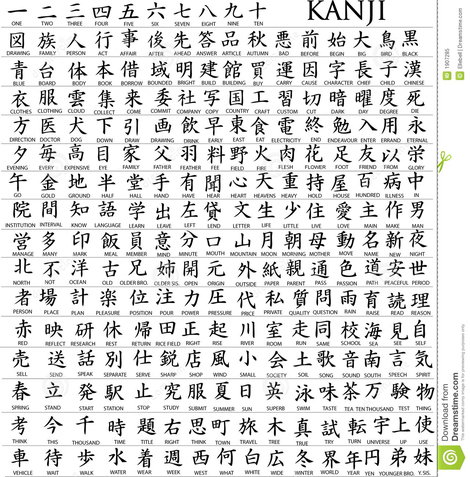 KANJI
一 二 三 四 五 六 七 八 九 十
ONE TWO THREE FOUR FIVE SIX SEVEN EIGHT NINE TEN
図 族 人 行 事 後 先 答 品 秋 悪 前 始 大 鳥 黒
DRAWING FAMILY PERSON ACT AFFAIR AFTER AHEAD ANSWER ARTICLE AUTUMN BAD BEFORE BEGIN BIG BIRD BLACK
青 台 体 本 借 域 明 建 館 買 運 因 字 長 子 漢
BLUE BOARD BODY BOOK BORROW BOUNDARY BRIGHT BUILD BUILDING BUY CARRY CAUSE CHARACTER CHIEF CHILD CHINESE
衣 服 雲 集 来 委 社 写 国 工 習 切 暗 曜 度 死
CLOTHES CLOTHING CLOUD COLLECT COME COMMIT COMPANY COPY COUNTRY CRAFT CUSTOM CUT DARK DAY DEGREE DIE
方 医 犬 下 引 画 飲 早 東 食 電 終 勉 入 用 永
DIRECTION DOCTOR DOG DOWN DRAW DRAWING DRINK EARLY EAST EAT ELECTRICITY END ENDEAVOUR ENTER ERRAND ETERNAL
夕 毎 高 目 家 父 羽 料 野 火 肉 花 足 友 以 栄
EVENING EVERY EXPENSIVE EYE FAMILY FATHER FEATHER FEE FIELD FIRE FLESH FLOWER FOOT FRIEND FROM GLORY
午 金 地 半 堂 手 有 聞 心 天 重 持 屋 百 病 中
GO GOLD GROUND HALF HALL HAND HAVE HEAR HEART HEAVENS HEAVY HOLD HOUSE HUNDRED ILLNESS IN
院 間 知 語 学 出 左 貸 文 生 少 住 愛 主 作 男
INSTITUTION INTERVAL KNOW LANGUAGE LEARN LEAVE LEFT LEND LETTER LIFE LITTLE LIVE LOVE MAIN MAKE MAN
営 多 印 飯 員 意 分 口 山 月 朝 母 動 名 新 夜
MANAGE MANY MARK MEAL MEMBER MIND MINUTE MOUTH MOUNTAIN MOON MORNING MOTHER MOVE NAME NEW NIGHT
北 不 洋 古 兄 姉 開 元 外 紙 親 通 色 道 安 世
NORTH NOT OCEAN OLD OLDER BRO. OLDER SIS. OPEN ORIGIN OUTSIDE PAPER PARENT PASS PASSION PATH PEACEFUL PERIOD
者 場 計 楽 位 注 力 圧 代 私 質 問 雨 育 読 理
PERSON PLACE PLAN PLEASURE POSITION POUR POWER PRESSURE PRICE PRIVATE QUALITY QUESTION RAIN RAISE READ REASON
赤 映 研 休 帰 田 正 起 川 室 走 同 校 海 見 自
RED REFLECT RESEARCH REST RETURN RICE FIELD RIGHT RISE RIVER ROOM RUN SAME SCHOOL SEA SEE SELF
売 送 話 別 仕 鋭 店 風 小 会 土 歌 音 南 言 気
SELL SEND SPEAK SEPARATE SERVE SHARP SHOP WIND SMALL SOCIETY SOIL SONG SOUND SOUTH SPEECH SPIRIT
春 立 発 駅 止 究 服 夏 日 英 泳 味 茶 万 験 物
SPRING STAND START STATION STOP STUDY SUBMIT SUMMER SUN SUPERB SWIM TASTE TEA TEN THOUSAND TEST THING
考 今 千 時 題 右 思 町 旅 木 真 試 転 宇 上 使
THINK THIS THOUSAND TIME TITLE RIGHT THINK TOWN TRAVEL TREE TRUE TRY TURN UNIVERSE UP USE
車 待 歩 水 着 週 西 何 白 広 冬 界 年 円 弟 妹
VEHICLE WAIT WALK WATER WEAR WEEK WEST WHAT WHITE WIDE WINTER WORLD YEAR YEN YOUNGER BRO. Y.SIS.
Download from
Dreamstime.com